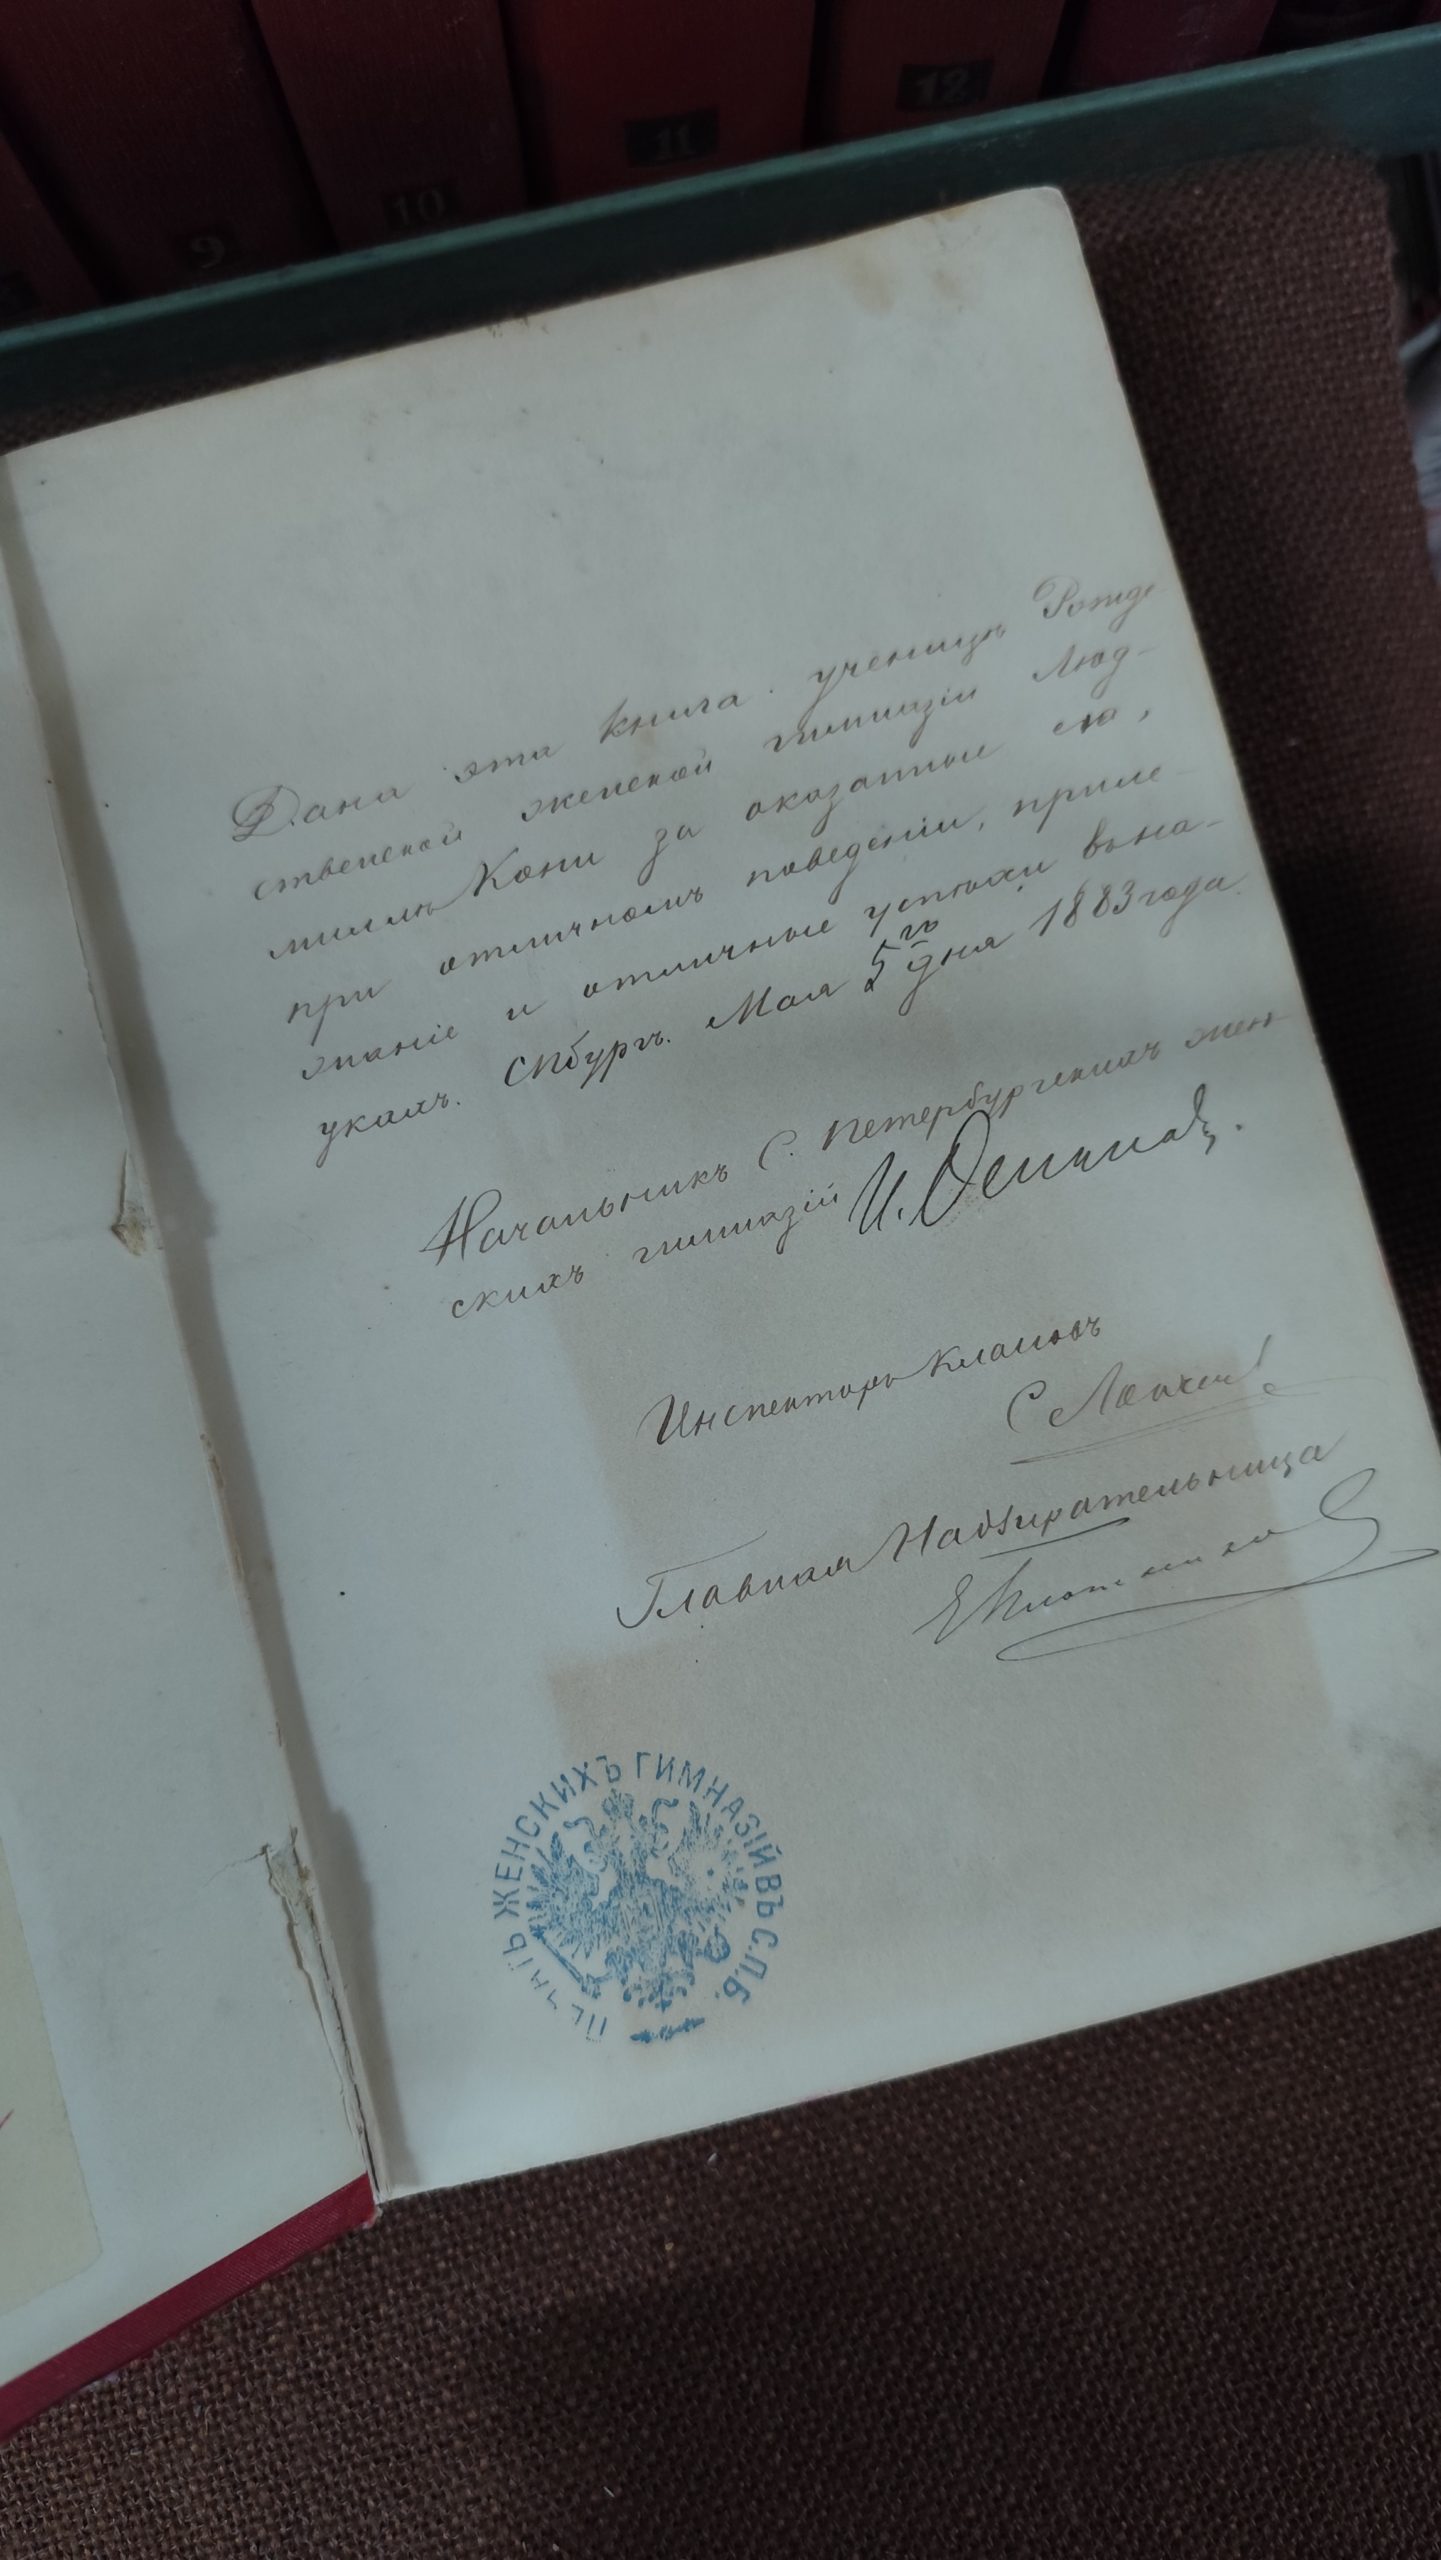 9
10
11
12
Дана эта книга ученицѣ Рожде-
ственской женской гимназіи Люд-
милѣ Кони за оказанные ею,
при отличномъ поведеніи, приле-
жаніе и отличные успѣхи въ на-
укахъ. СПбургъ. Мая 5го дня 1883 года.
Начальникъ С. Петербургскихъ жен-
скихъ гимназій И. Осининъ.
Инспекторъ классовъ
С.
Главная Надзирательница
ПЕЧАТЬ ЖЕНСКИХЪ ГИМНАЗІЙ ВЪ С.П.Б.